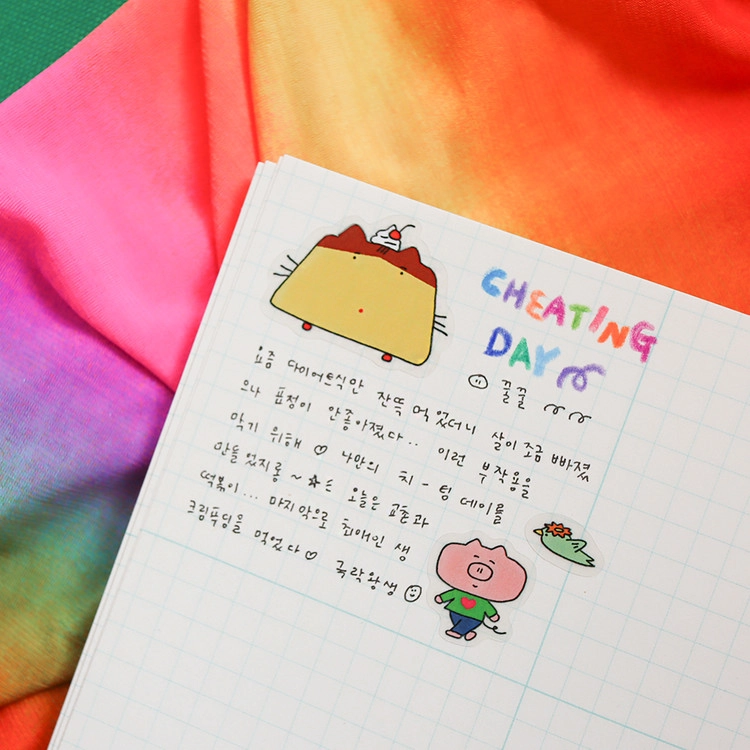 CHEATING
DAY
꿀꿀
요즘 다이어트식만 잔뜩 먹었더니 살이 조금 빠졌
으나 표정이 안좋아졌다.. 이런 부작용을
막기 위해 ♡ 나만의 치-텀 데이를
만들었지롱~☆ 오늘은 교촌과
떡볶이... 마지막으로 최애인 생
크림푸딩을 먹었다♡ 극락왕생